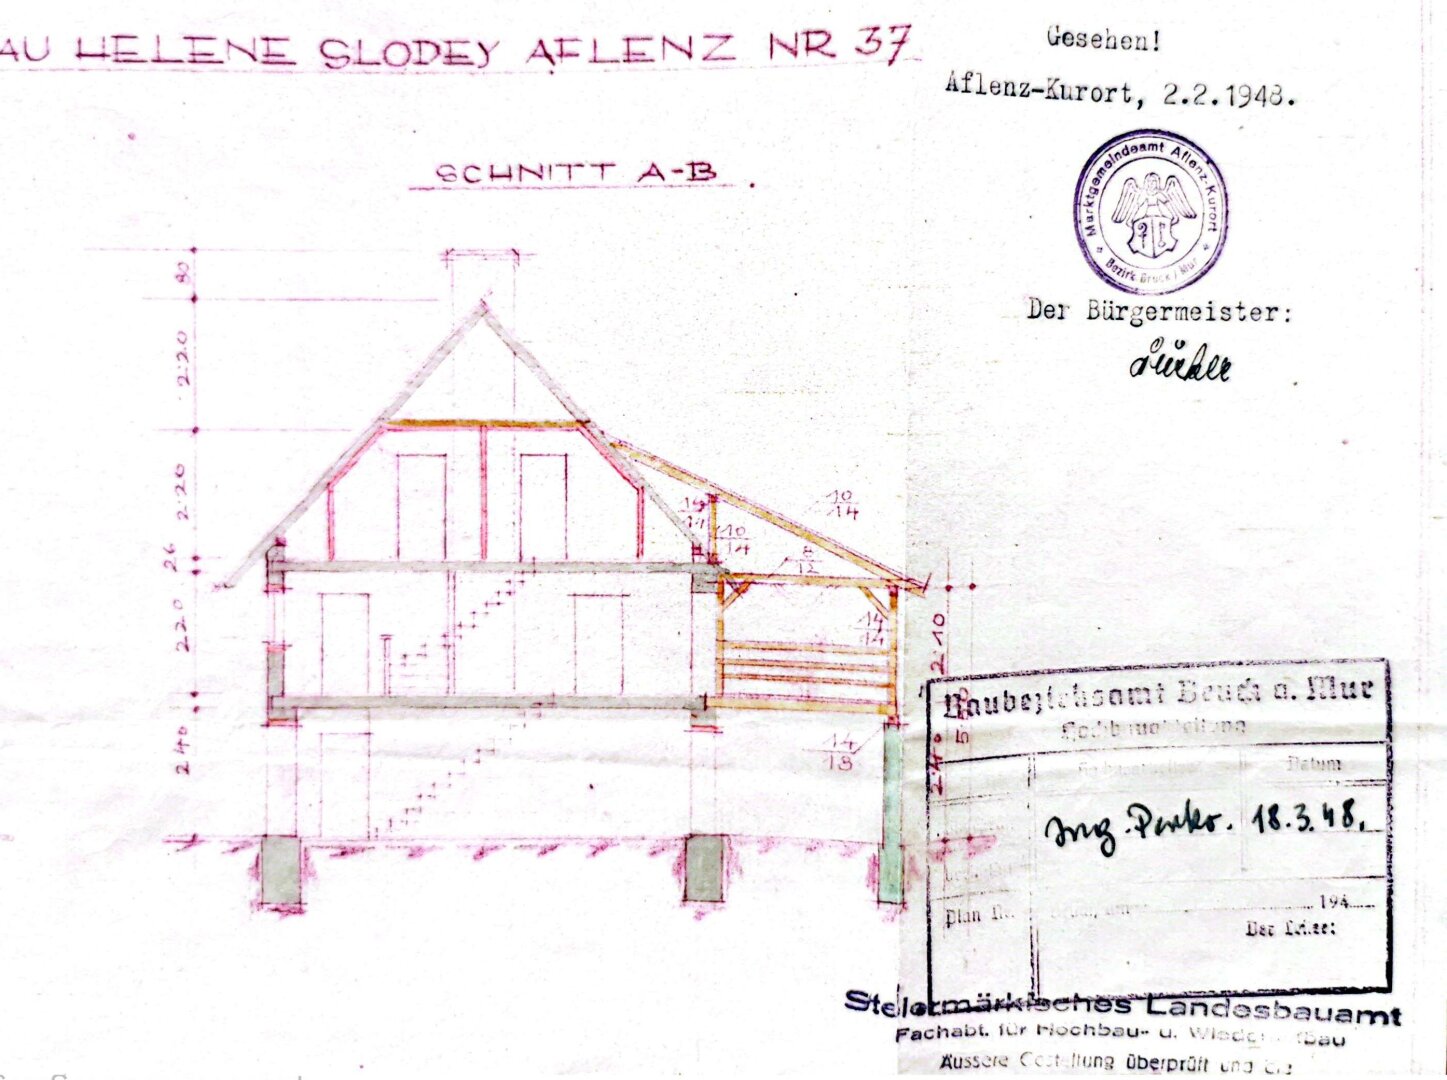 AU HELENE SLODEY AFLENZ NR 37
Gesehen!
Aflenz-Kurort, 2.2.1948.
SCHNITT A-B
Marktgemeindeamt Aflenz-Kurort
Bezirk Bruck / Mur
Der Bürgermeister:
80
2.20
2.20
26
2.20
2.40
10
14
10
14
8
12
14
14
14
18
2.10
2.40
Baubezirksamt Bruck a. Mur
Hochbauabteilung
Datum
Ing. 18.3.48.
Plan Nr.
194
Der Leiter:
Steiermärkisches Landesbauamt
Fachabt. für Hochbau- u.
Äussere Gestaltung überprüft und